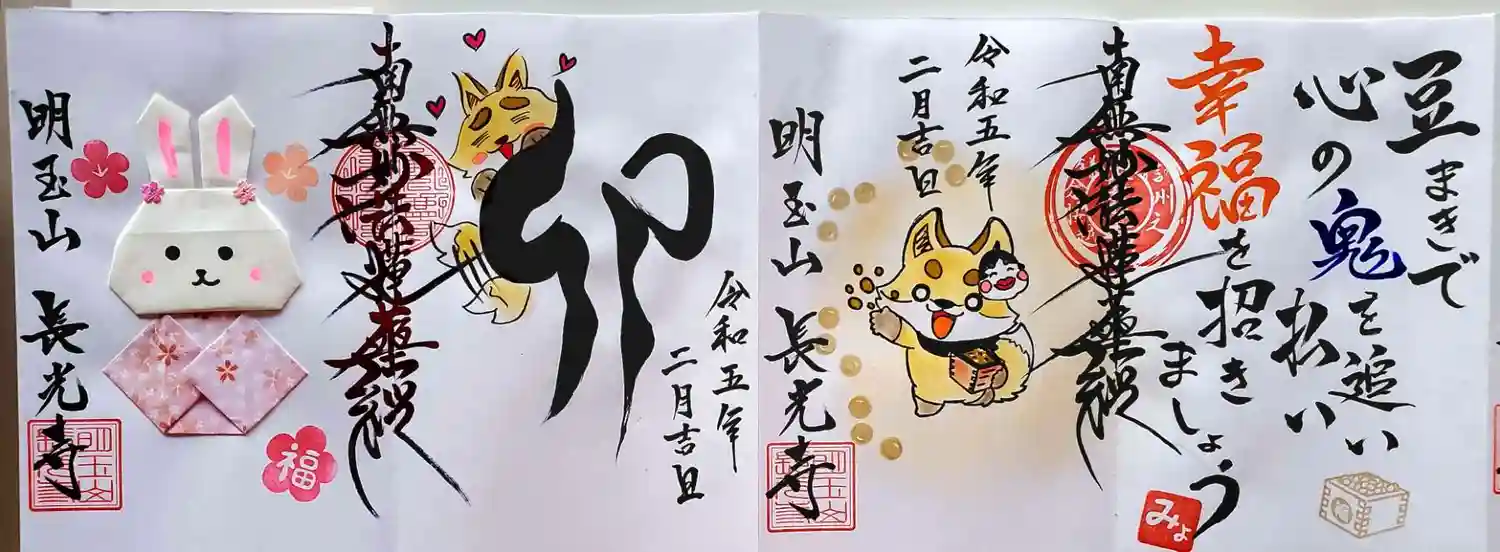 豆まきで
心の鬼を追い
払い
幸福を招き
ましょう
みょ
南無妙法蓮華経
令和五年
二月吉旦
明玉山 長光寺
令和五年
二月吉旦
卯
南無妙法蓮華経
福
明玉山 長光寺